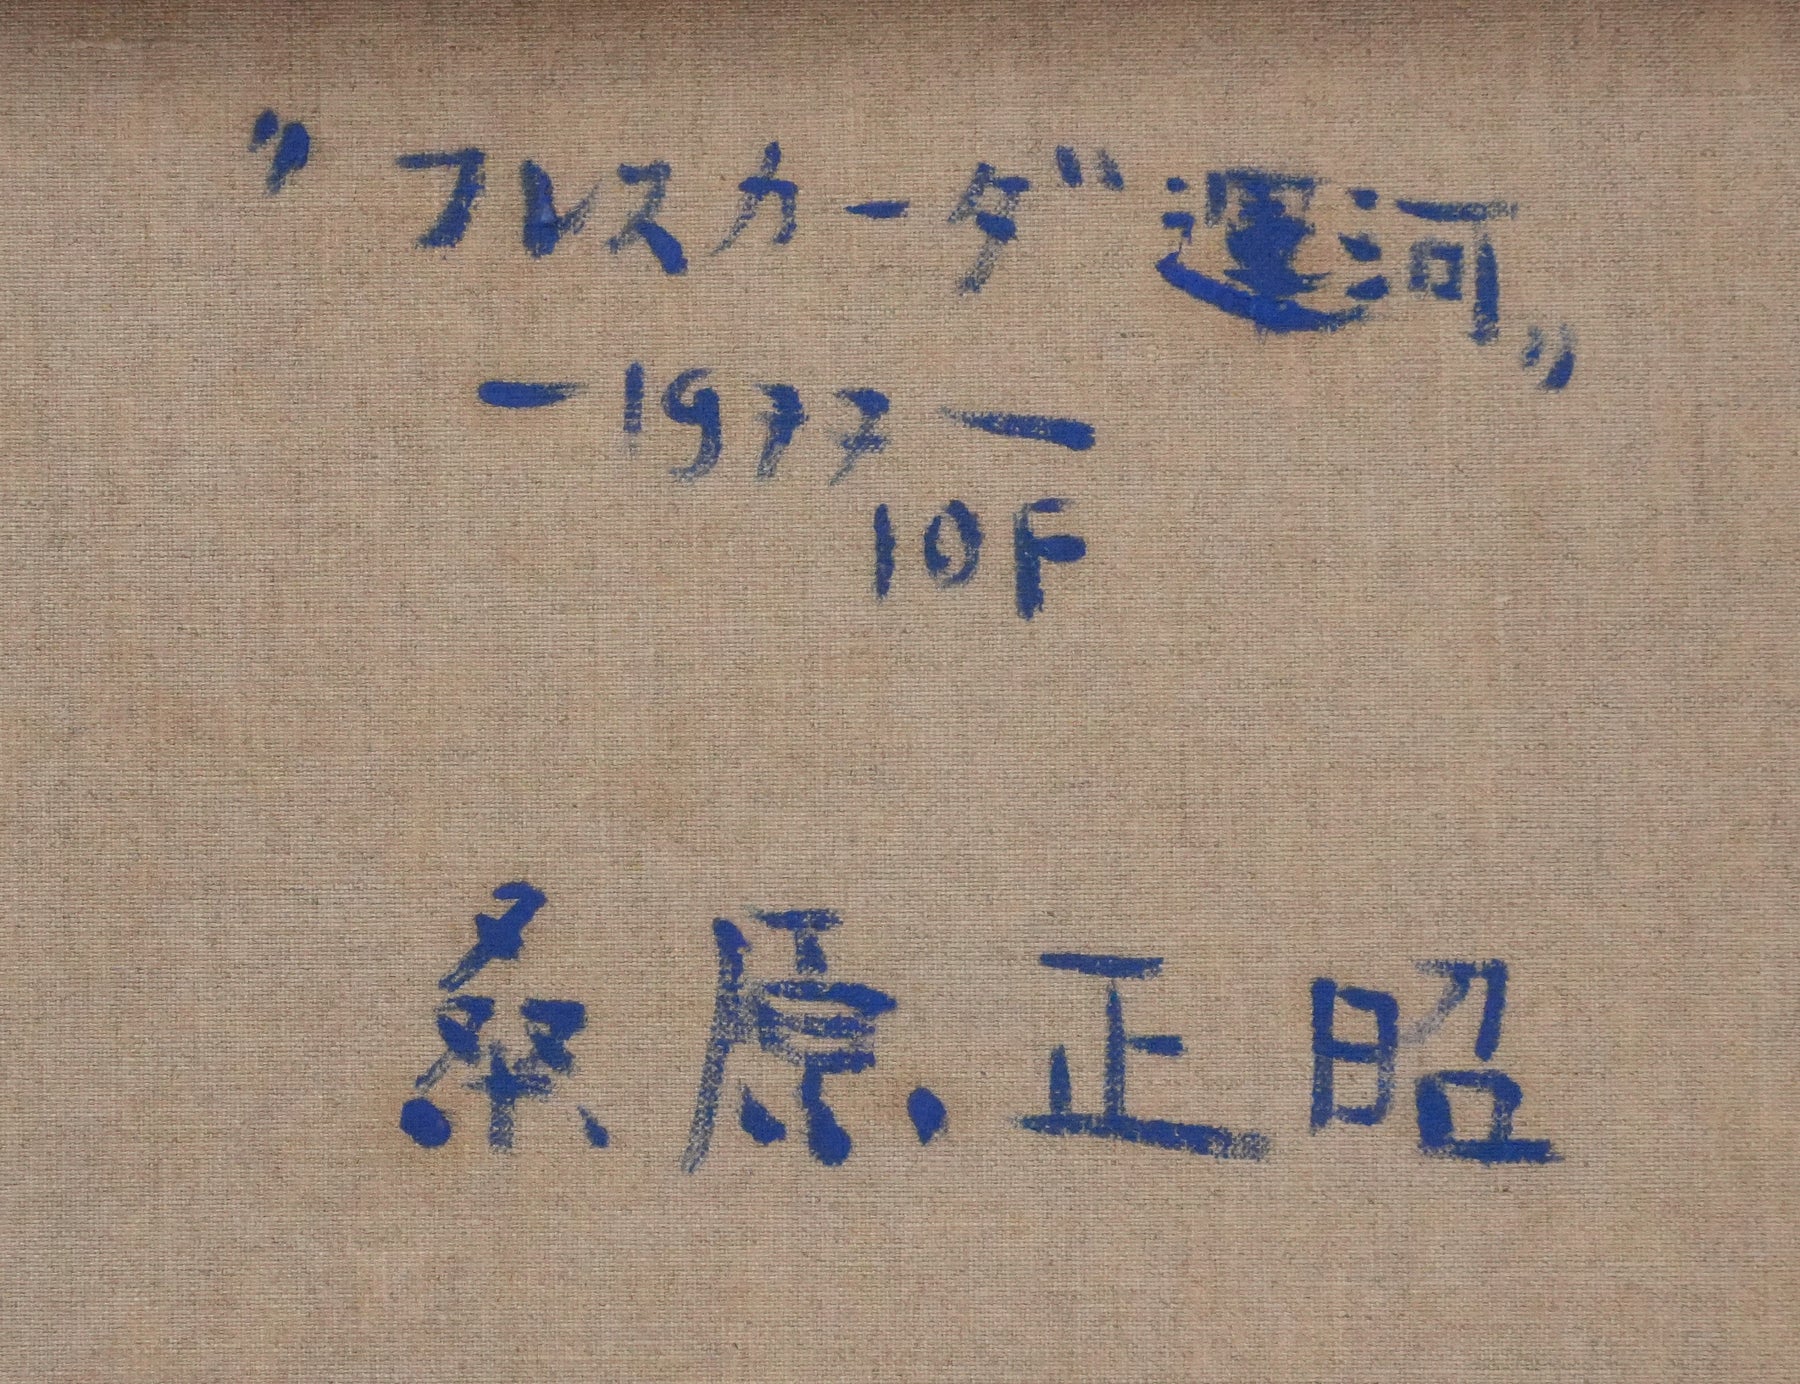 "フレスカーダ運河"
—1977—
10F
桑原正昭